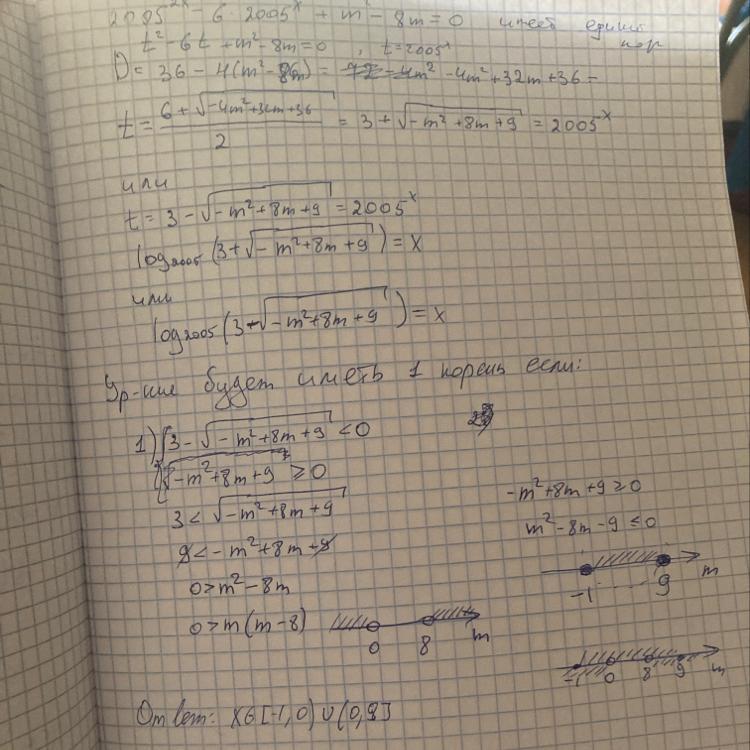 2005^2x - 6 · 2005^x + m² - 8m = 0 имеет един
кор
t² - 6t + m² - 8m = 0 , t = 2005^x
D = 36 - 4(m² - 8m) = -4m² + 32m + 36 =
t = (6 + √(-4m² + 32m + 36))/2 = 3 + √(-m² + 8m + 9) = 2005^x
или
t = 3 - √(-m² + 8m + 9) = 2005^x
log₂₀₀₅(3 + √(-m² + 8m + 9)) = x
или
log₂₀₀₅(3 - √(-m² + 8m + 9)) = x
Ур-ние будет иметь 1 корень если:
1) 3 - √(-m² + 8m + 9) < 0
-m² + 8m + 9 ≥ 0
3 < √(-m² + 8m + 9)
9 < -m² + 8m + 9
0 > m² - 8m
0 > m(m - 8)
0 8 m
-m² + 8m + 9 ≥ 0
m² - 8m - 9 ≤ 0
-1 9 m
-1 0 8 9 m
Ответ: x ∈ [-1, 0) ∪ (0, 9]